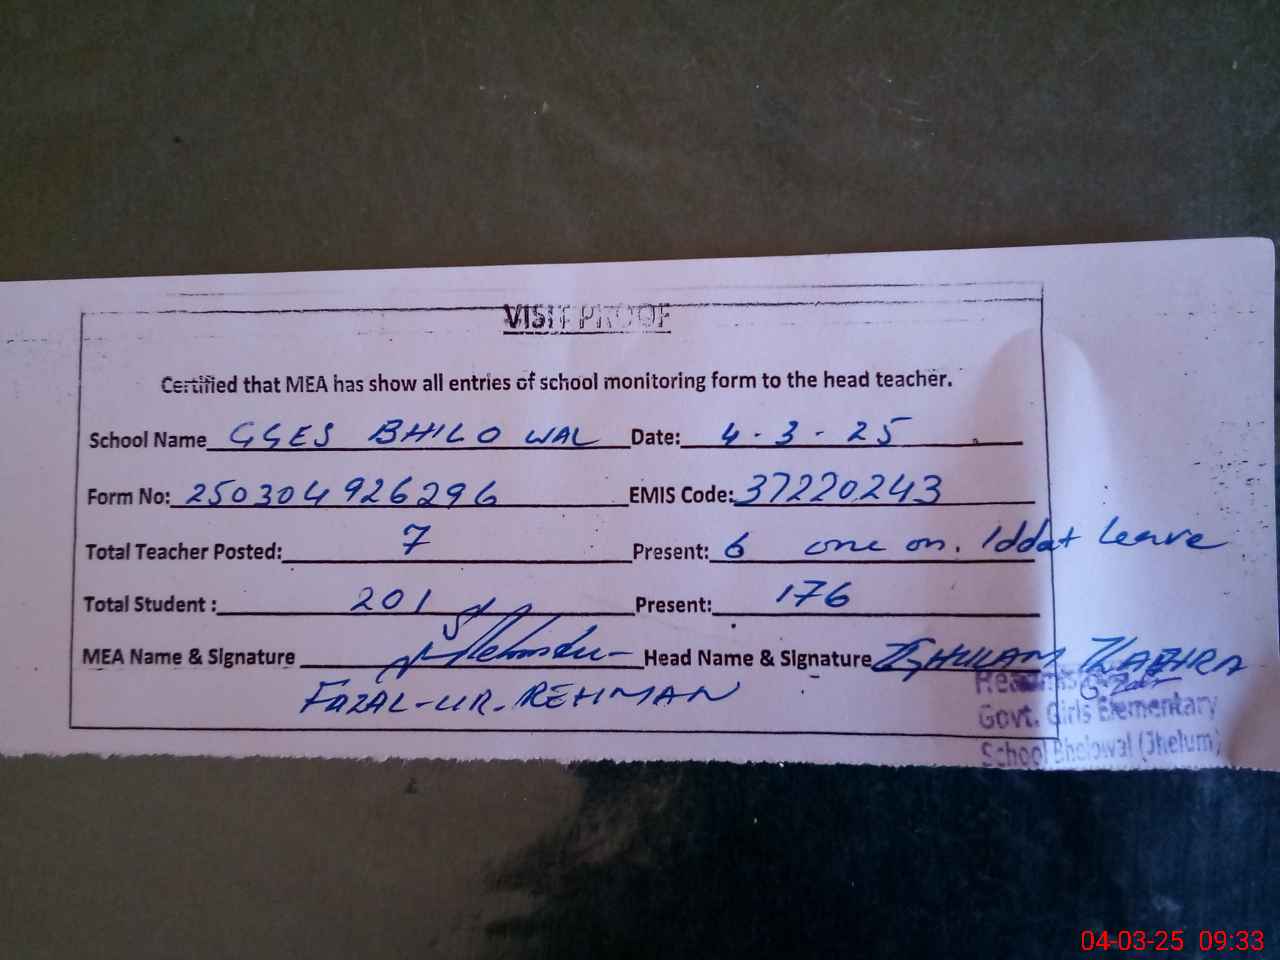 VISIT PROOF
Certified that MEA has show all entries of school monitoring form to the head teacher.
School Name GGES BHILOWAL Date: 4-3-25
Form No: 250304926296 EMIS Code: 37220243
Total Teacher Posted: 7 Present: 6 one on. Iddat leave
Total Student : 201 Present: 176
MEA Name & Signature Head Name & Signature GHULAM ZAHRA
FAZAL-UR-REHMAN
Headmistress
Govt. Girls Elementary
School Bhelowal (Jhelum)
04-03-25 09:33